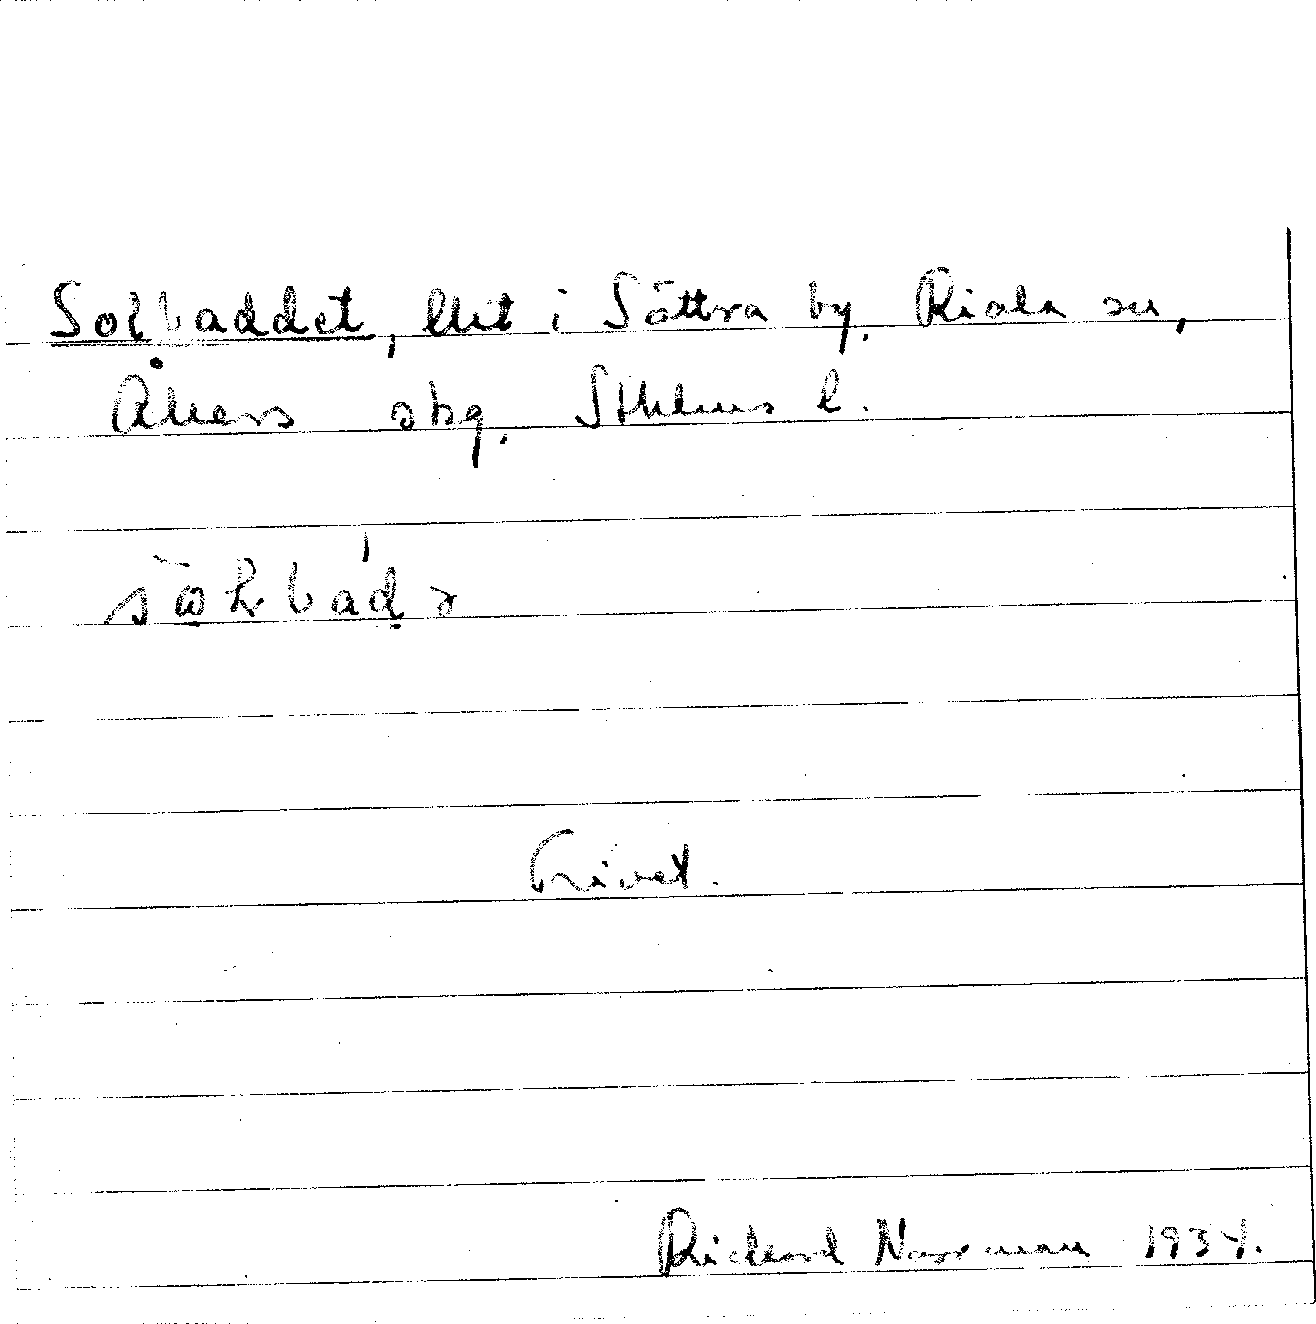 Solbaddet, lht i Sättra by. Riala sn,
Åkers skg. Sthlms l.
Trivet.
Richard Norrman 1934.